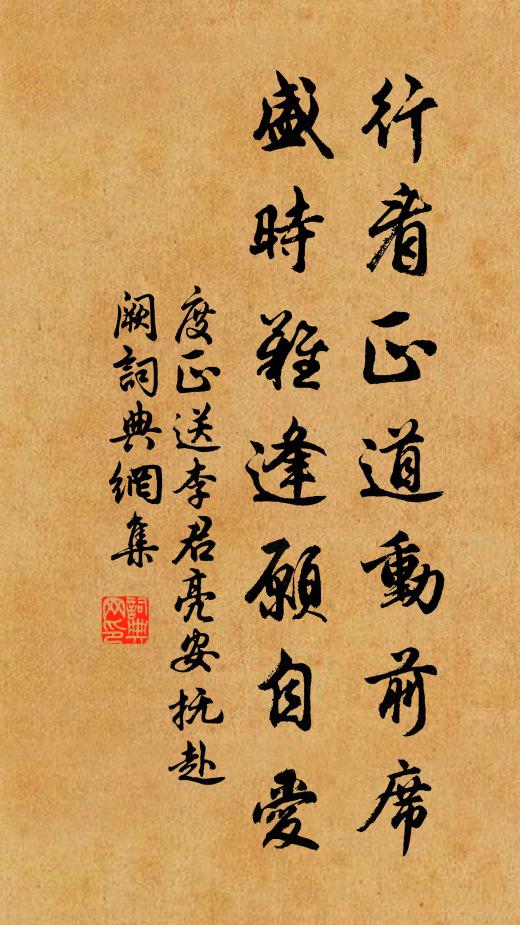 行看正道動前席
盛時難逢願自愛
度正送李君亮安抚赴
闕詞典網集
詞典
网印